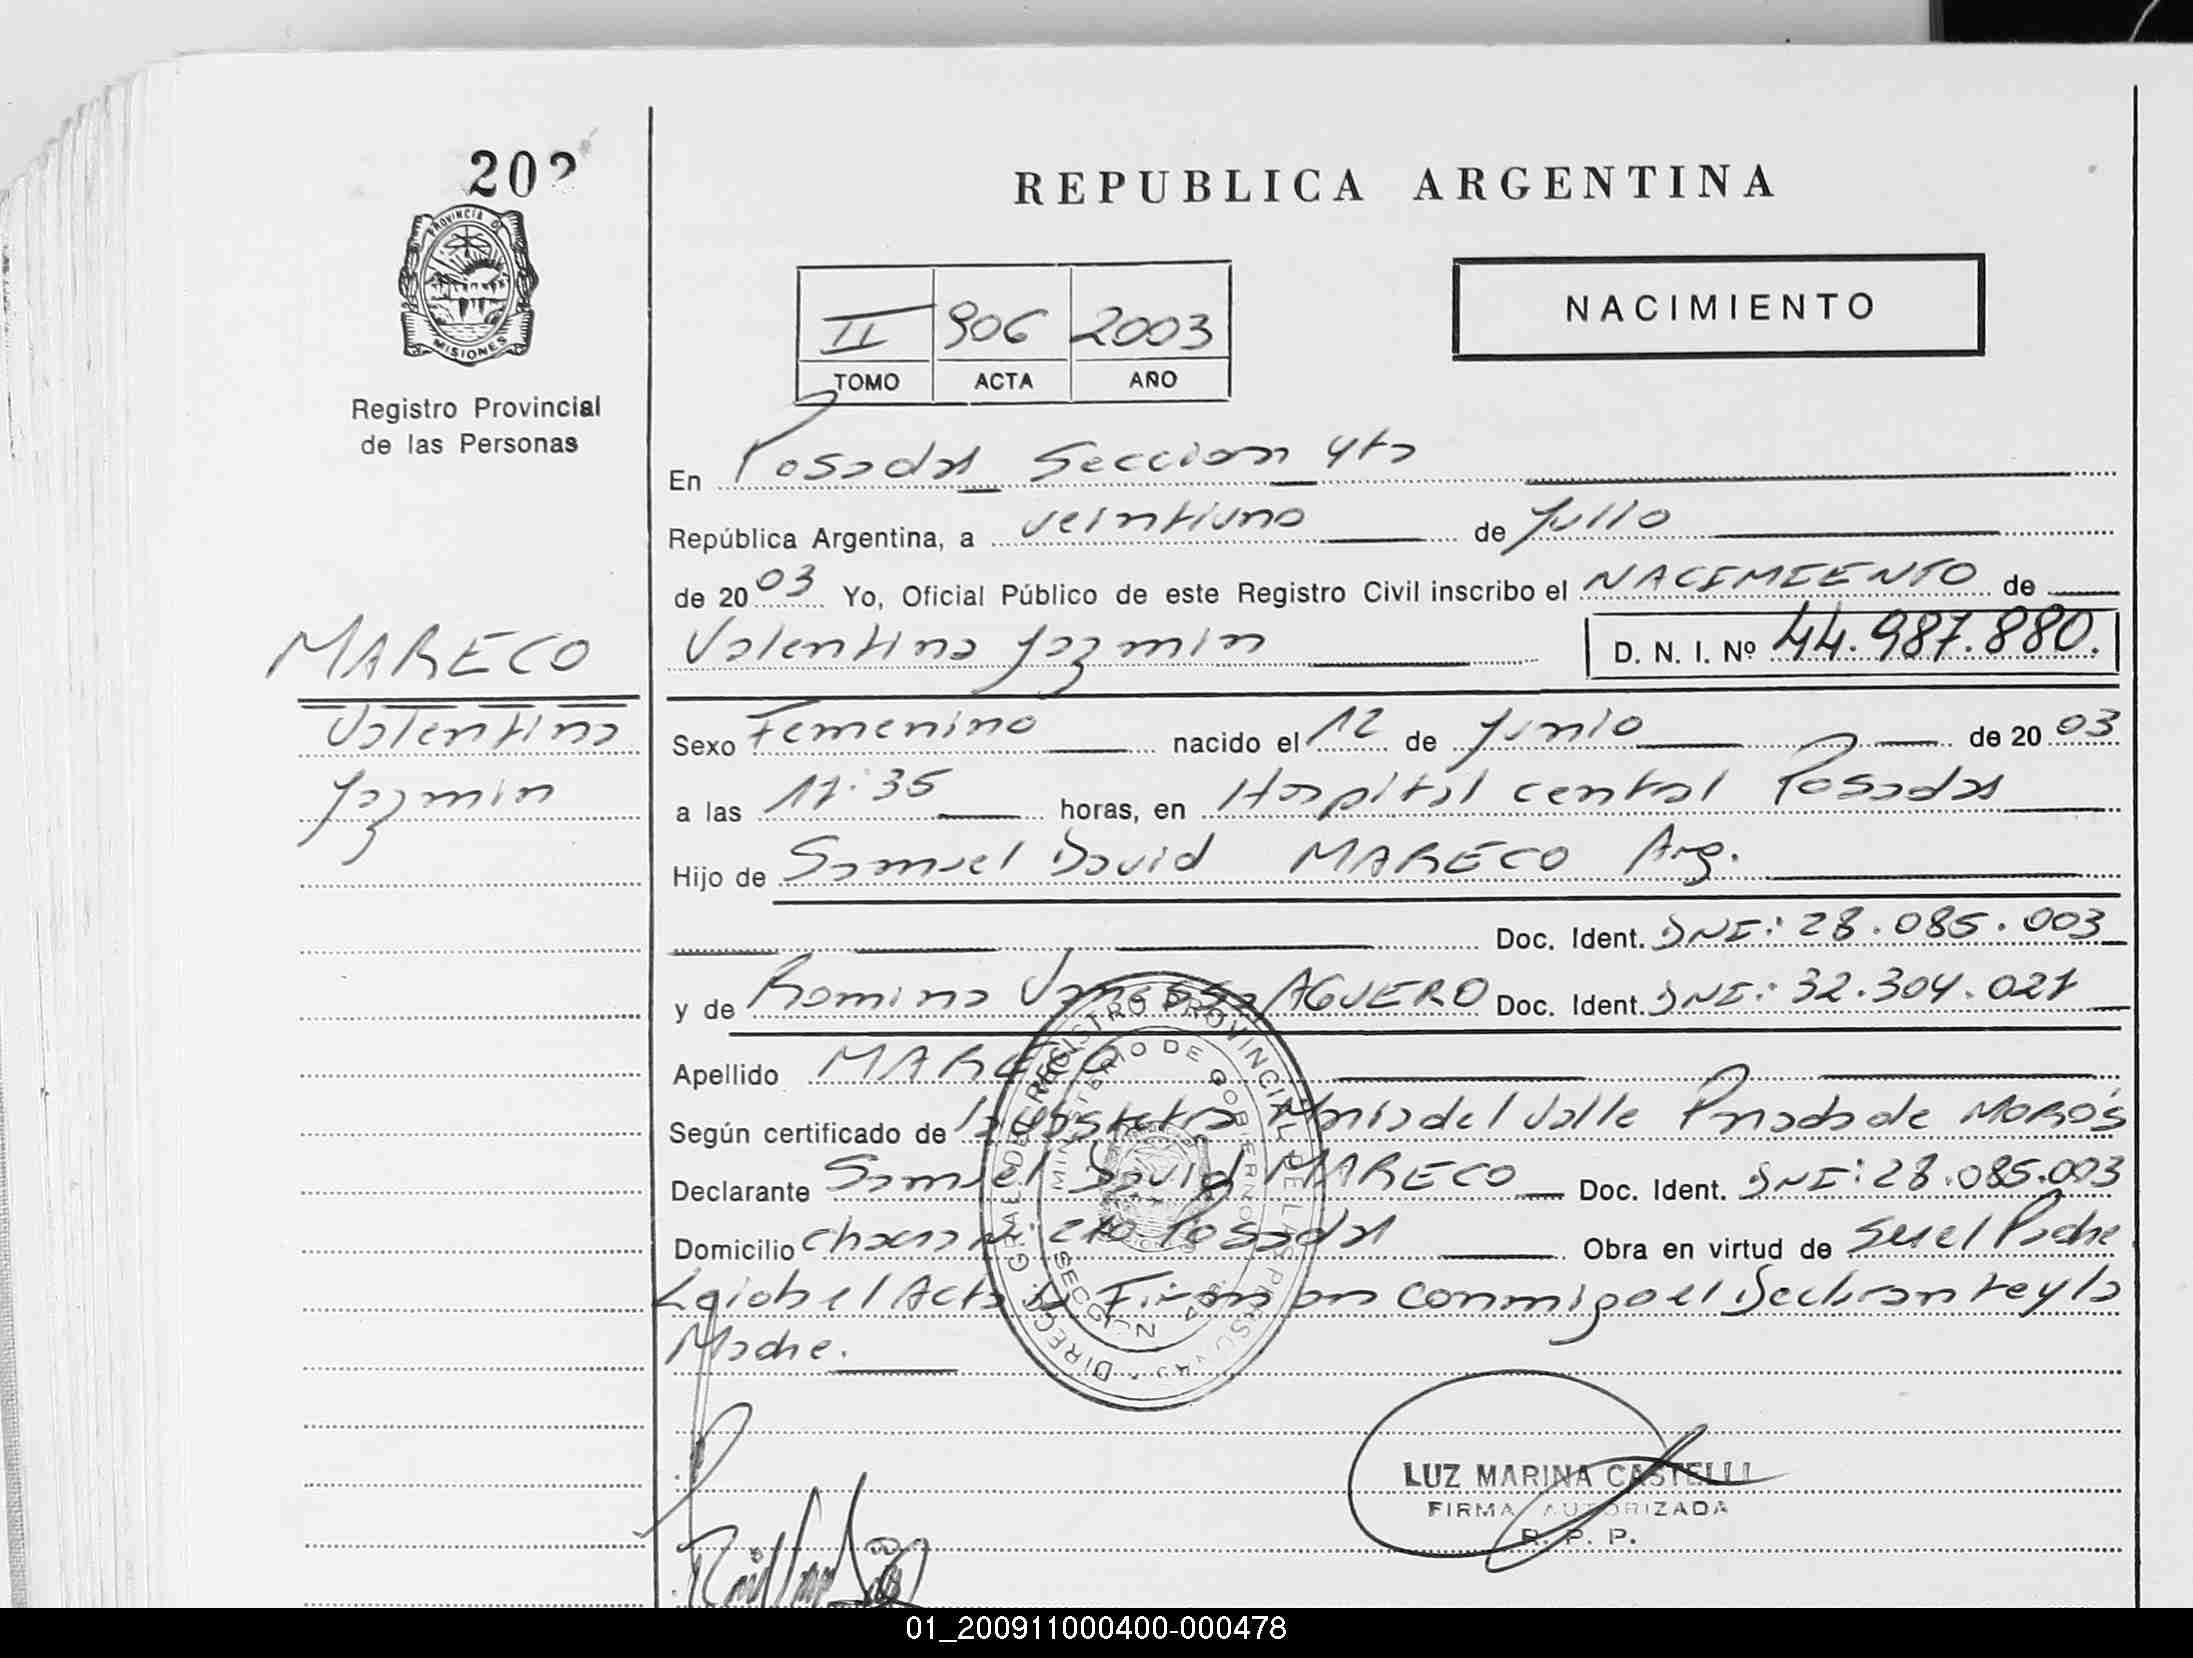 202
PROVINCIA DE
MISIONES
Registro Provincial
de las Personas
MARECO
Valentina
Jazmin
REPUBLICA ARGENTINA
NACIMIENTO
II 906 2003
TOMO ACTA AÑO
En Posadas Seccion 4ta
República Argentina, a veintiuno de Julio
de 2003 Yo, Oficial Público de este Registro Civil inscribo el NACIMIENTO de
Valentina Jazmin D. N. I. Nº 44.987.880.
Sexo Femenino nacido el 12 de Junio de 2003
a las 11:35 horas, en Hospital central Posadas
Hijo de Samuel David MARECO Arg.
Doc. Ident. DNI: 28.085.003
y de Romina Vanessa AGUERO Doc. Ident. DNI: 32.304.021
Apellido MARECO
Según certificado de la Obstetra Maria del Valle de
Declarante Samuel David MARECO Doc. Ident. DNI: 28.085.003
Domicilio Posadas Obra en virtud de ser el Padre
Leida el Acta Firman conmigo el Declarante y la
Madre.
DIREC. GRAL. DE REGISTRO PROVINCIAL DE LAS PERSONAS
MINISTERIO DE GOBIERNO
SECCION 4ta
LUZ MARINA CASTELLI
FIRMA AUTORIZADA
R. P. P.
01_200911000400-000478